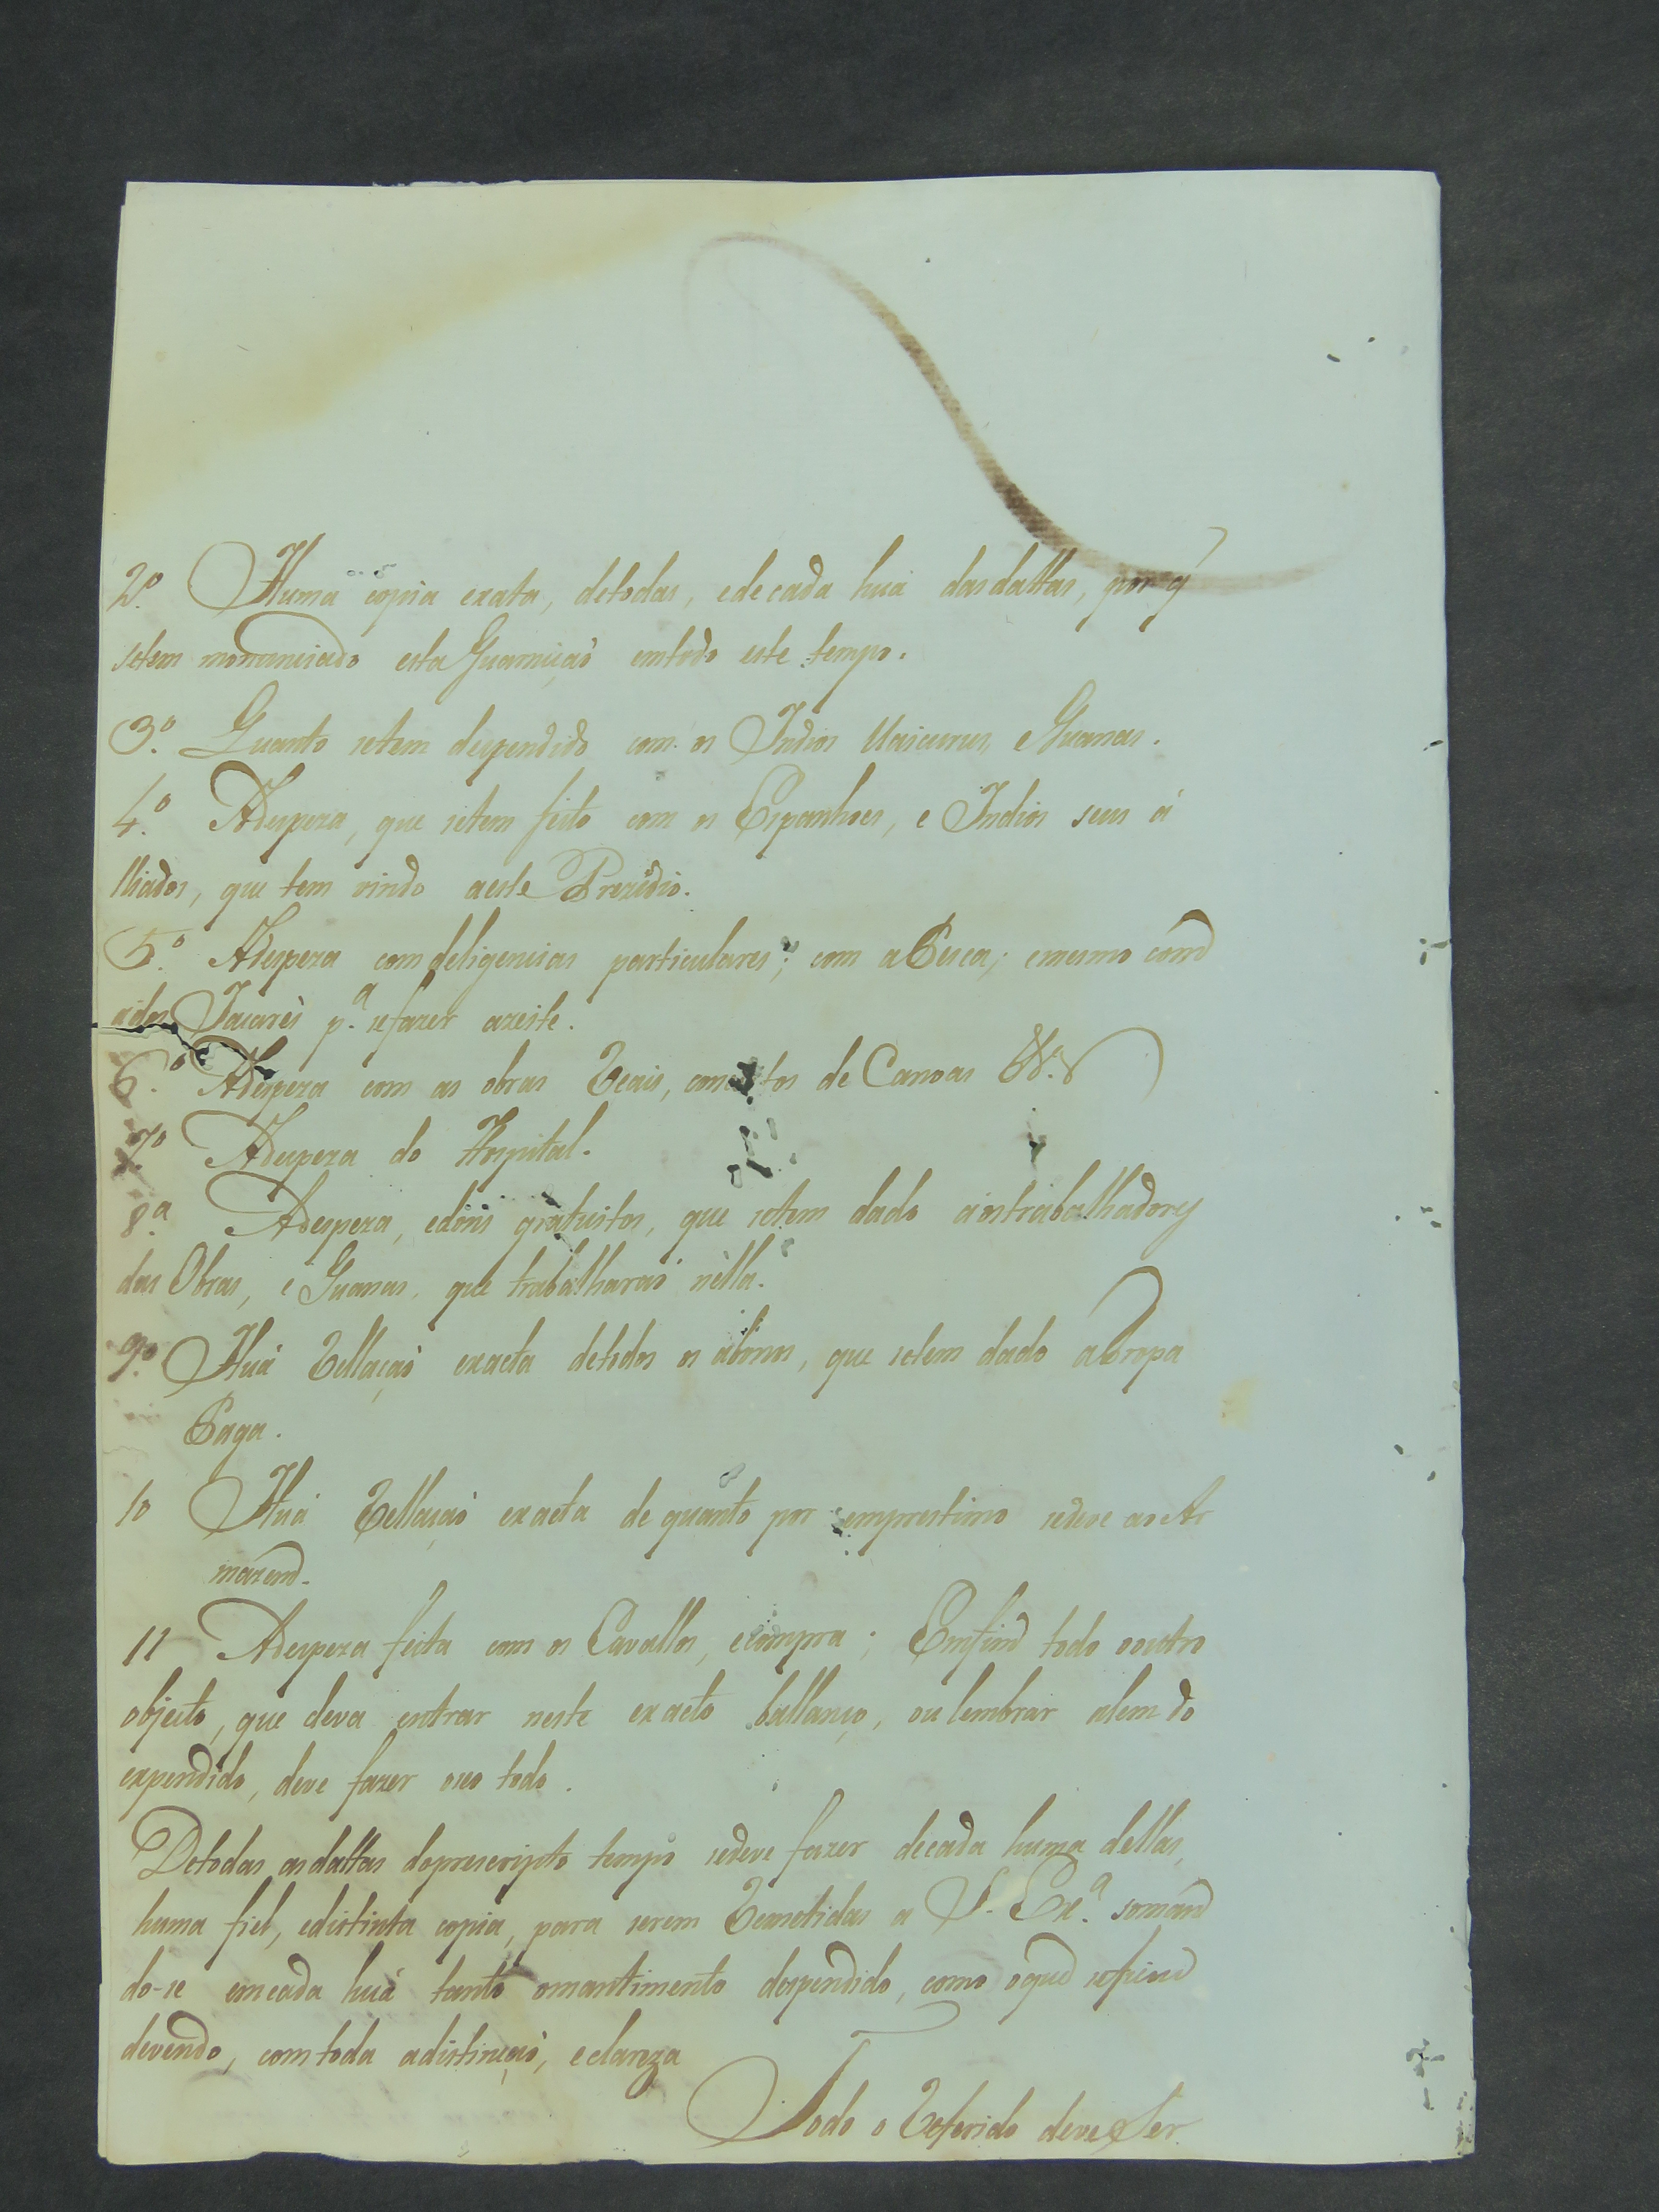 2.º Huma copia exata, detodas, edecada huã dasdattas, por q̃
setem monnuciado esta Guarniçaõ emtodo este tempo.
3.º Quanto setem despendido com os Indios Uaicurus, eGuanas.
4.º Adespeza, que setem feito com os Espanhoes, e Indios seus á
lliados, que tem vindo aeste Prezidio.
5.º Adespeza comdeligencias particulares; com aPesca; emesmo com
ados Jacarès p.ª sefazer azeite.
6.º Adespeza com as obras Reais, concertos de Canoas &.ª
7º Adespeza do Hospital.
8.ª Adespeza, edóns gratuitos, que setem dado aostrabalhadores
das Obras, e Guanas, que trabalharaõ nella.
9.º Huã Rellaçaõ exacta detodos os abonos, que setem dado aTropa
Paga.
10 Huã Rellaçaõ exacta de quanto por emprestimo sedeve aoAr
mazem.
11 Adespeza feita com os Cavallos, ecompra; Emfim todo ooutro
objecto, que deva entrar neste exacto ballanço, ou lembrar alem do
expendido, deve fazer o todo.
Detodas asdattas doprescripto tempo sedeve fazer decada huma dellas,
huma fiel, edistinta copia, para serem Remetidas a S. Ex.ª soman
do-se emcada huã tanto omantimento despendido, como oque seficou
devendo, comtoda adistinçaõ, eclareza
Todo o Referido deve Ser